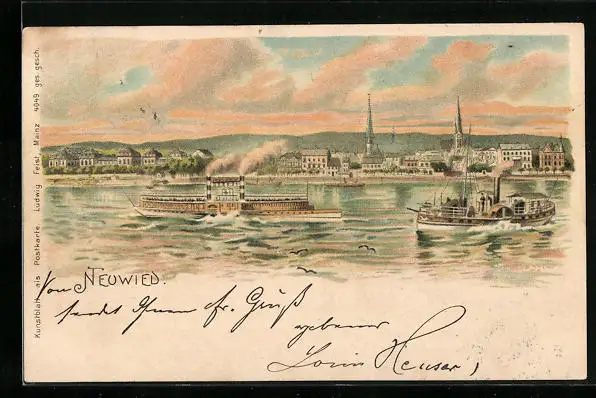 Kunstblatt als Postkarte. Ludwig Feist, Mainz 4049 ges. gesch.
Von NEUWIED.
sendet Ihnen fr. Gruß
Louis Heuser